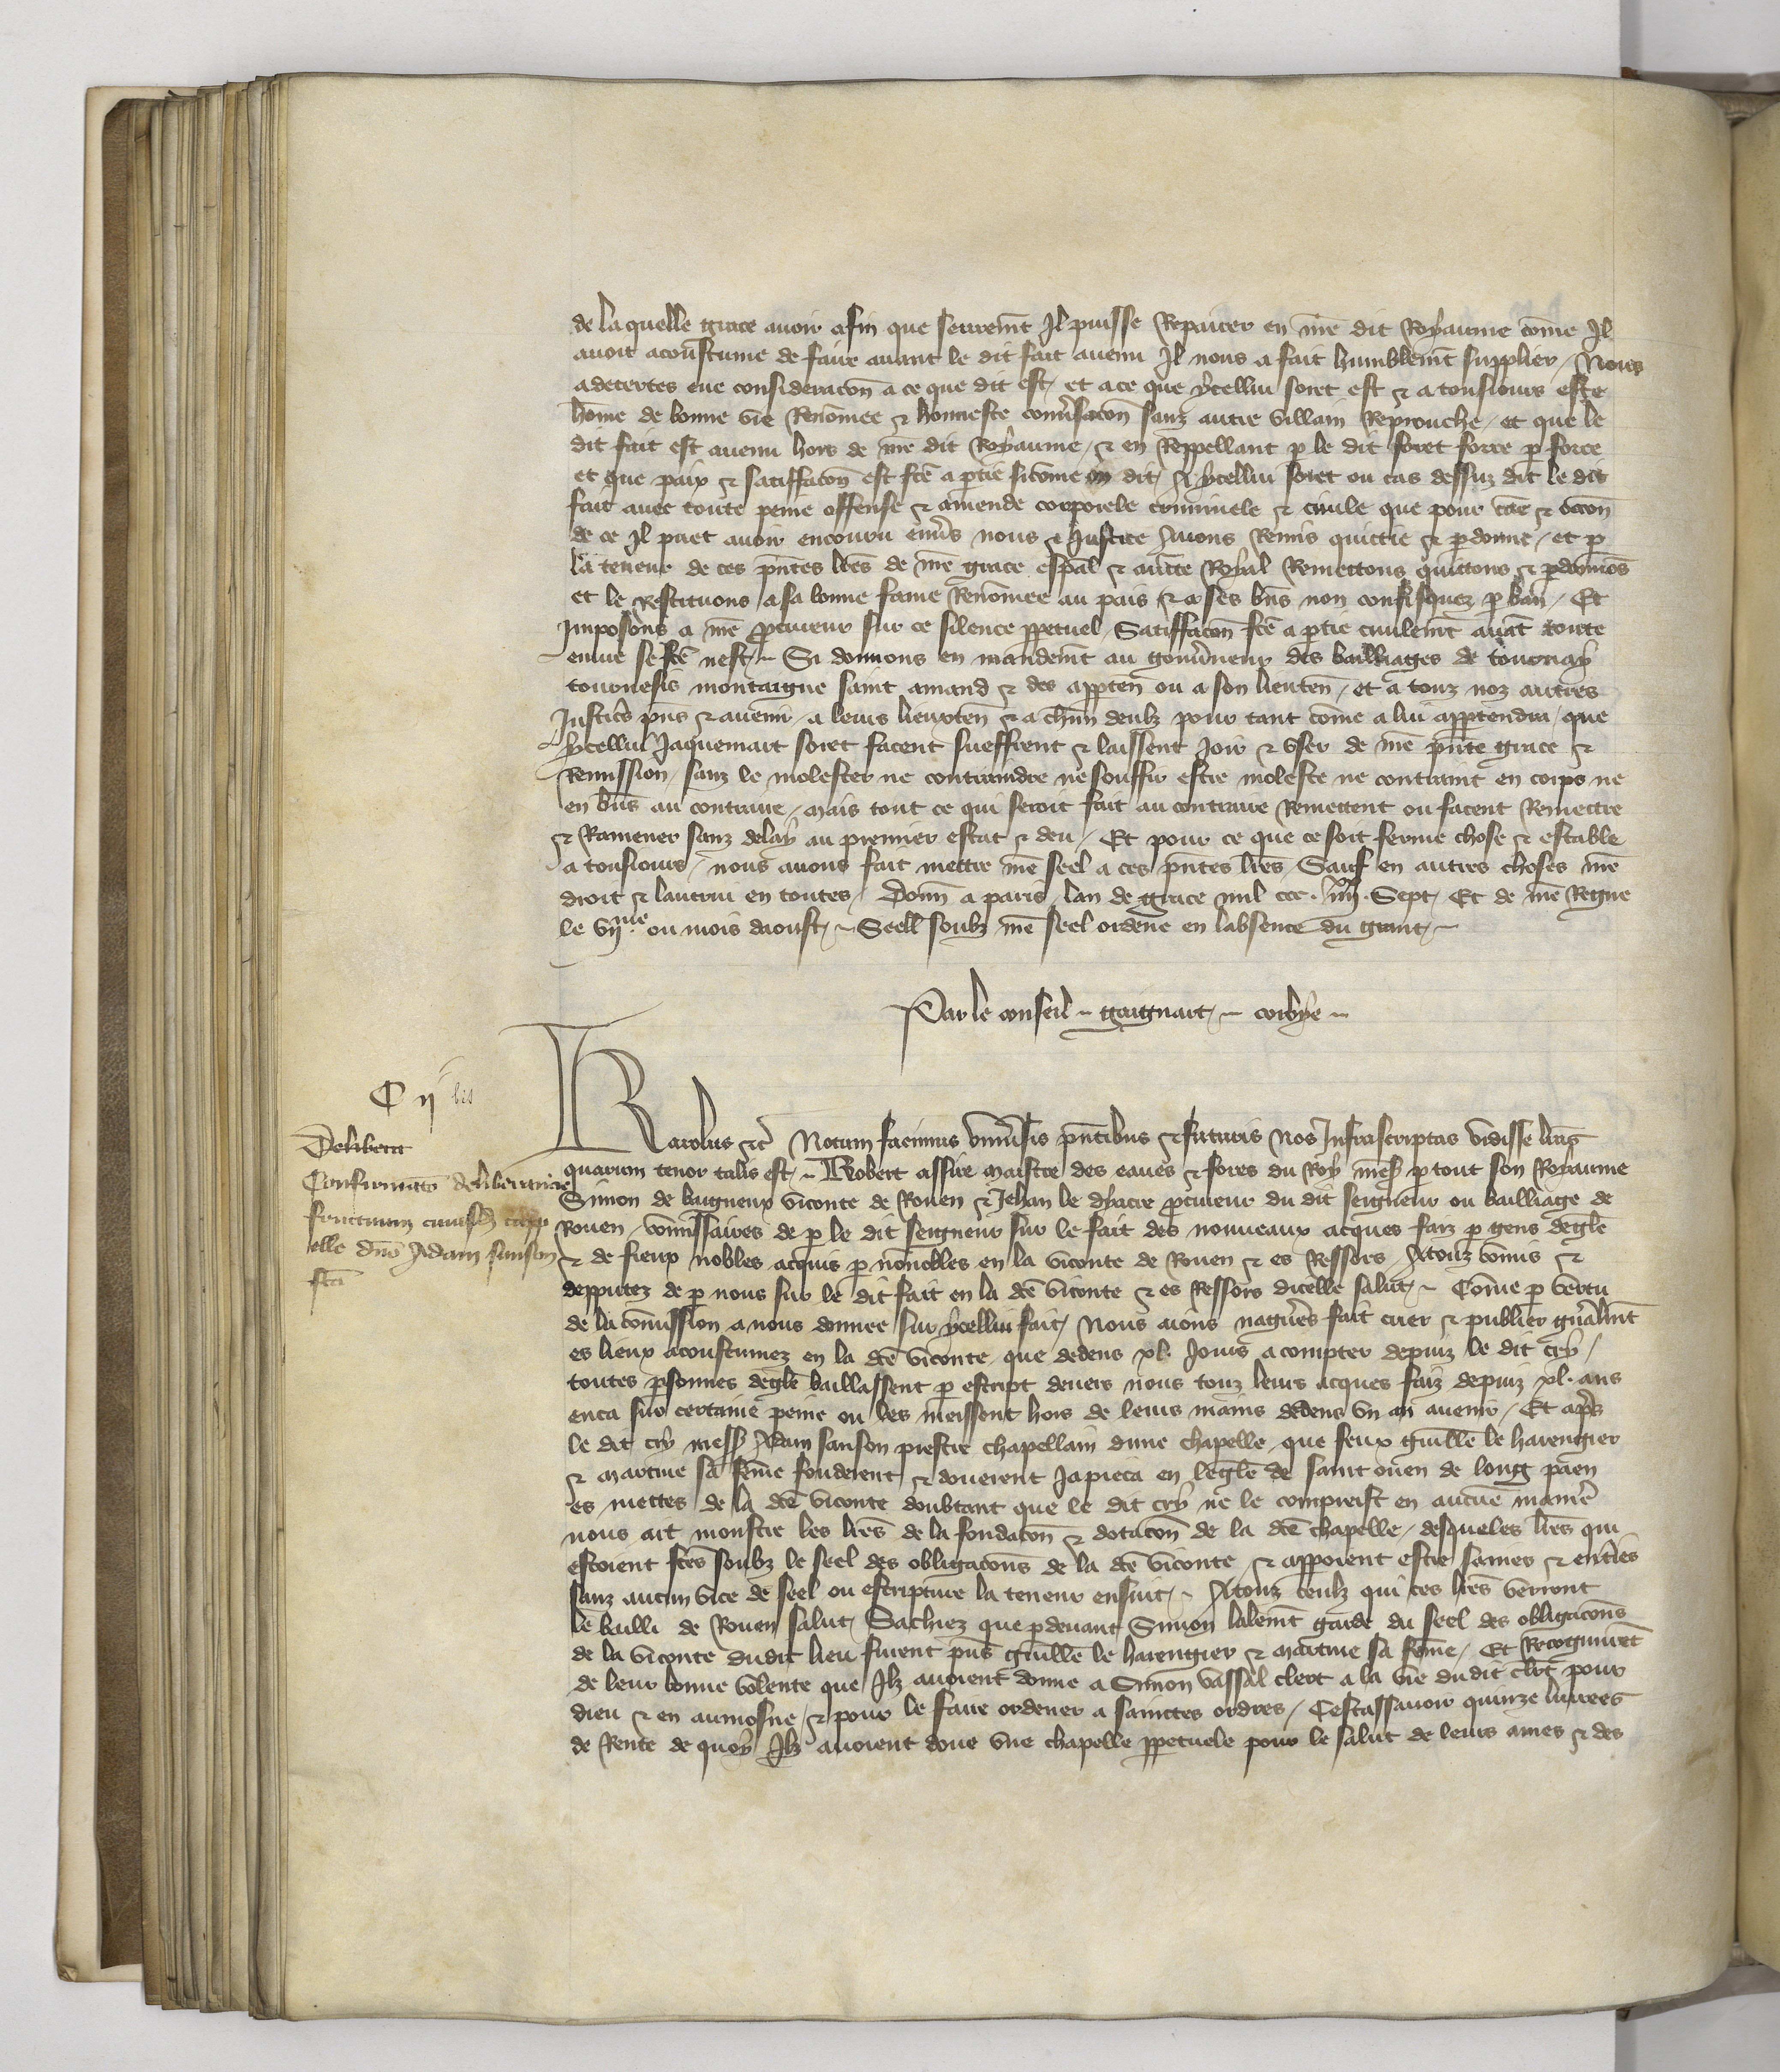 de laquelle grace avoir afin que seurem̄t Il puisse Repairer en nr̄e dit Royaume com̄e Il
avoit acoustume de faire avant le dit fait avenu Il nous a fait humblem̄t supplier / Nous
adecertes eue consideracōn a ce que dit est / et a ce que ycellui soret est & a tousiours este
hom̄e de bonne vie Renōmee & honneste convsacōn sanz autre villain Reprouche / et que le
dit fait est avenu hors de nr̄e dit Royaume / & en Reppellant p le dit soret force p force
et que paix & satiffacōn est fcē a ptie sicom̄e on dit / A ycellui soret ou cas dessuz dit le dit
fait avec toute peine offense & amende corporele criminele & civile que pour cāe & occōn
de ce Il puet avoir encouru envs nous & Justice Avons Remis quictie & pdonne / et p
la teneur de ces pn̄tes lrēs de nr̄e grace esp̄al & auctē Royal Remettons quittons & pdonnōs
et le Restituons a sa bonne fame Renōmee au pais & a ses bn̄s non confisquez p ban / Et
Imposons a nr̄e pcureur sur ce silence ppetuel / Satiffacōn fcē a ptie civilem̄t avāt toute
euvre se fcē nest / Si donnons en mandem̄t au gouv̄neur des bailliages de tournay
tournesis mortaigne saint amand & des apptēn ou a son lieutēn / et a touz noz autres
Justicīs pn̄s & avenir / a leurs lieuxtēn & a chūn deulz pour tant com̄e a lui apptendra / que
ycellui Jaquemart soret facent sueffrent & laissent Joir & user de nr̄e pn̄te grace &
Remission / sanz le molester ne contraindre ne souffrir estre moleste ne contraint en corps ne
en bn̄s au contraire / mais tout ce qui seroit fait au contraire Remettent ou facent Remettre
& Ramener sanz delay au premier estat & deu / Et pour ce que ce soit ferme chose & estable
a tousiours / nous avons fait mettre nr̄e seel a ces pn̄tes lrēs / Sauf en autres choses nr̄e
droit & lautrui en toutes / Donn̄ a paris lan de grace mil ccc . iiij . Sept / Et de nr̄e Regne
le vijme ou mois daoust / Seell soubz nr̄e seel ordene en labsence du grant /
Par le conseil gaignart / corbye
C ij bis
Karolus &c̄ Notum facimus univsis pn̄tibus & futuris Nos Infrascriptas vidisse lrās
quarum tenor talis est / Robert assire maistre des eaues & fores du Roy nr̄e s̄ p tout son Royaume
Simon de baigneux viconte de Rouen & Jehan le dyacre pcureur du dit seigneur ou bailliage de
Rouen / cōmissaires de p le dit seigneur sur le fait des nouveaux acques faiz p gens degl̄e
& de fieux nobles acquis p nōnobles en la viconte de Rouen & es Ressors / A touz cōmis &
depputez de p nous sur le dit fait en la dcē viconte & es Ressors dicelle salut / Com̄e p vertu
de la cōmission a nous donnee sur ycellui fait / Nous aions nagueres fait crier & publier gnāl̄mt
es lieux acoustumez en la dcē viconte / que dedens xl. Jours a compter depuiz le dit cry /
toutes psonnes degl̄e baillassent p escript devers nous touz leurs acques faiz depuiz xl. ans
enca sur certaine peine ou les meissent hors de leurs mains dedens un an avenir / Et ap̄s
le dit cry mess̄ Adam sanson prestre chapellain dune chapelle / que feux guill̄e le harengier
& martine sa fem̄e fonderent & douerent Japieca en legl̄e de saint oüen de long paen
es mettes de la dcē viconte doubtant que le dit cry ne le compreist en aucune manīe
nous ait monstre les lrēs de la fondacōn & dotacōn de la dcē chapelle / desqueles lrēs qui
estoient fcēs soubz le seel des obligacōns de la dcē viconte / & apparoient estre saines & entīes
sanz aucun vice de seel ou escripture la teneur ensuit / A touz ceulz qui ces lrēs verront
le bailli de Rouen salut / Sachiez que pdevant Simon lalem̄t garde du seel des obligacōns
de la viconte dudit lieu furent pn̄s guill̄e le harengier & martine sa fem̄e / Et Recogn̄urēt
de leur bonne volente que Ilz avoient donne a Simon vassal clerc a la vie dudit clerc pour
dieu & en aumosne / & pour le faire ordener a sainctes ordres / Cestassavoir quinze livrees
de Rente de quoy Ilz avoient doue une chapelle ppetuele pour le salut de leurs ames & des
Delibera
Confirmatō deliberacōis
elle dn̄o Adam sanson
fcā